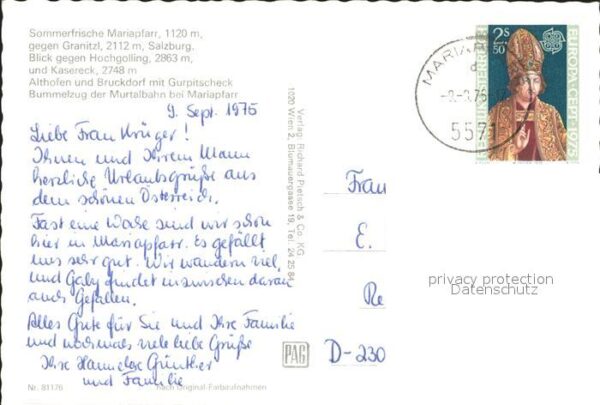 Sommerfrische Mariapfarr, 1120 m,
gegen Granitzl, 2112 m, Salzburg.
Blick gegen Hochgolling, 2863 m,
und Kasereck, 2748 m
Althofen und Bruckdorf mit Gurpitscheck
Bummelzug der Murtalbahn bei Mariapfarr
9. Sept. 1975
Liebe Frau Krüger!
Ihnen und Ihrem Mann
herzliche Urlaubsgrüße aus
dem schönen Österreich.
Fast eine Woche sind wir schon
hier in Mariapfarr. Es gefällt
uns sehr gut. Wir wandern viel,
und Gaby findet inzwischen daran
auch Gefallen.
Alles Gute für Sie und Ihre Familie
und nochmals viele liebe Grüße
Ihre Hannelore Günther
und Familie
Nr. 81176
nach Original-Farbaufnahmen
Verlag: Richard Pietsch & Co. KG
1020 Wien 2, Blumauergasse 19, Tel. 24 25 84
PAG
2S
50
EUROPA CEPT 1975
5571
Frau
E.
Re
D-230
privacy protection
Datenschutz